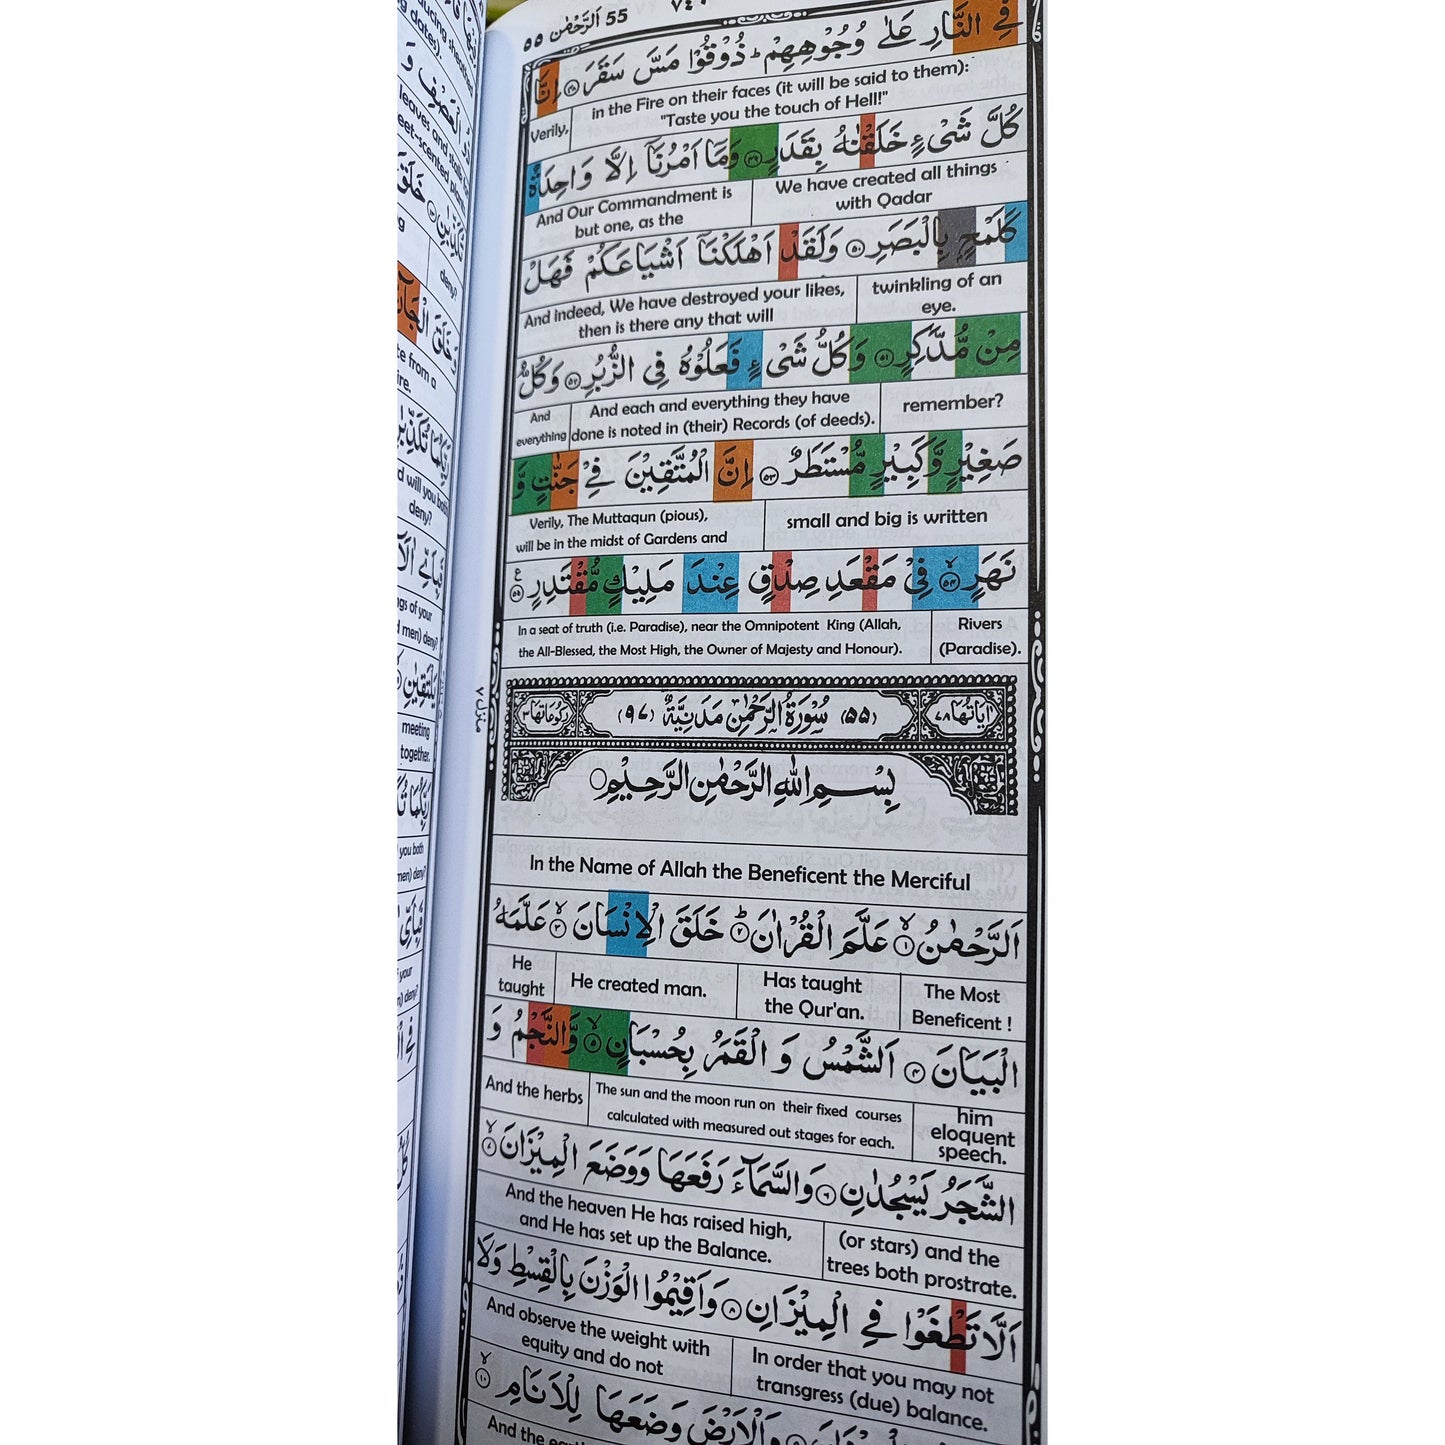 55 اَلرَّحْمٰن ٥٥
فِي النَّارِ عَلٰى وُجُوْهِهِمْ ؕ ذُوْقُوْا مَسَّ سَقَرَ ۴۸ اِنَّا
in the Fire on their faces (it will be said to them):
"Taste you the touch of Hell!"
Verily,
كُلَّ شَىْءٍ خَلَقْنٰهُ بِقَدَرٍ ۴۹ وَمَاۤ اَمْرُنَاۤ اِلَّا وَاحِدَةٌ
We have created all things
with Qadar
And Our Commandment is
but one, as the
كَلَمْحٍۭ بِالْبَصَرِ ۵۰ وَلَقَدْ اَهْلَكْنَاۤ اَشْيَاعَكُمْ فَهَلْ
twinkling of an
eye.
And indeed, We have destroyed your likes,
then is there any that will
مِنْ مُّدَّكِرٍ ۵۱ وَكُلُّ شَىْءٍ فَعَلُوْهُ فِى الزُّبُرِ ۵۲ وَكُلُّ
remember?
And each and everything they have
done is noted in (their) Records (of deeds).
And
everything
صَغِيْرٍ وَّكَبِيْرٍ مُّسْتَطَرٌ ۵۳ اِنَّ الْمُتَّقِيْنَ فِيْ جَنّٰتٍ وَّ
small and big is written
Verily, The Muttaqun (pious),
will be in the midst of Gardens and
نَهَرٍ ۵۴ فِيْ مَقْعَدِ صِدْقٍ عِنْدَ مَلِيْكٍ مُّقْتَدِرٍ ۵۵
Rivers
(Paradise).
In a seat of truth (i.e. Paradise), near the Omnipotent King (Allah,
the All-Blessed, the Most High, the Owner of Majesty and Honour).
منزل ٧
اٰيَاتُهَا ٧٨ (٥٥) سُوْرَةُ الرَّحْمٰنِ مَدَنِيَّةٌ (٩٧) رُكُوْعَاتُهَا ٣
بِسْمِ اللّٰهِ الرَّحْمٰنِ الرَّحِيْمِ
In the Name of Allah the Beneficent the Merciful
اَلرَّحْمٰنُ ۱ عَلَّمَ الْقُرْاٰنَ ۲ خَلَقَ الْاِنْسَانَ ۳ عَلَّمَهُ
The Most
Beneficent !
Has taught
the Qur'an.
He created man.
He
taught
الْبَيَانَ ۴ اَلشَّمْسُ وَ الْقَمَرُ بِحُسْبَانٍ ۵ وَّالنَّجْمُ وَ
him
eloquent
speech.
The sun and the moon run on their fixed courses
calculated with measured out stages for each.
And the herbs
الشَّجَرُ يَسْجُدٰنِ ۶ وَالسَّمَآءَ رَفَعَهَا وَوَضَعَ الْمِيْزَانَ ۷
(or stars) and the
trees both prostrate.
And the heaven He has raised high,
and He has set up the Balance.
اَلَّا تَطْغَوْا فِي الْمِيْزَانِ ۸ وَاَقِيْمُوا الْوَزْنَ بِالْقِسْطِ وَلَا
In order that you may not
transgress (due) balance.
And observe the weight with
equity and do not
وَالْاَرْضَ وَضَعَهَا لِلْاَنَامِ ۱۰
And the